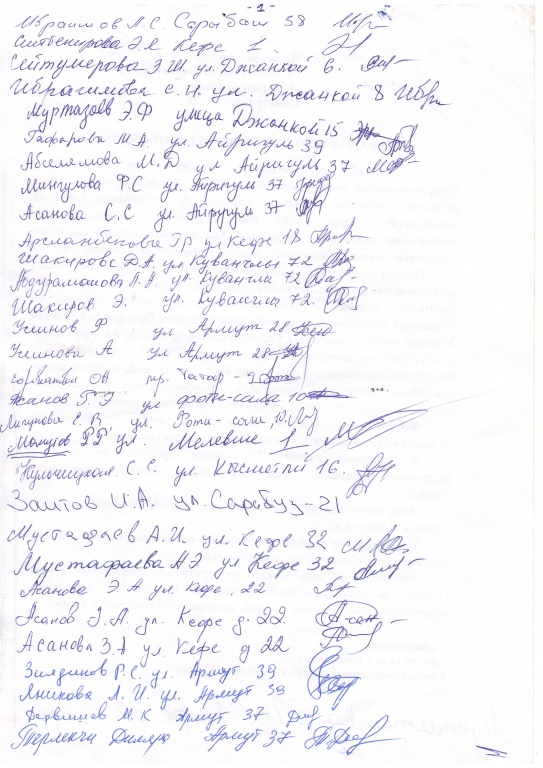 - 1 -
Ибраимов Л.С. Сарабаш 38
Сеитбекирова Э.Я Кефе 1.
Сейтумерова З.Ш. ул. Джанкой 6.
Ибрагимова С.Н. ул. Джанкой 8
Муртазаев Э.Ф улица Джанкой 15
Гафарова М.А. ул. Айригуль 39
Абселямова М.Д ул Айригуль 37
Мингулова Ф.С ул. Айригуль 37
Асанова С.С ул. Айригуль 37
Арсланбекова Гр ул Кефе 18
Шакирова Д.А. ул Куванчлы 72
Абдураманова Л.А. ул. Куванчлы 72
Шакиров Э. ул. Куванчлы 72.
Усеинов Ф ул Армут 28
Усеинова А ул Армут 28
пр. Татар - 9
Асанов Г.Э ул Фоти-сала 10
Е.В. ул. Фоти-сали, 10.
Мамутов Р.Р. ул. Мелевше 1
Кульчицкая. С.С. ул. Кысметли 16.
Заитов И.А. ул. Сарабуз-21
Мустафаев А.И ул. Кефе 32
Мустафаева НЭ ул Кефе 32
Асанова Э А ул. Кефе, 22
Асанов З.А. ул. Кефе д. 22.
Асанова З.А ул Кефе д 22
Зиядинов Р.С. ул. Армут 39
Яникова Л.И. ул. Армут 39
Дервишев М.К Армут 37
Терлекчи Диляра Армут 37